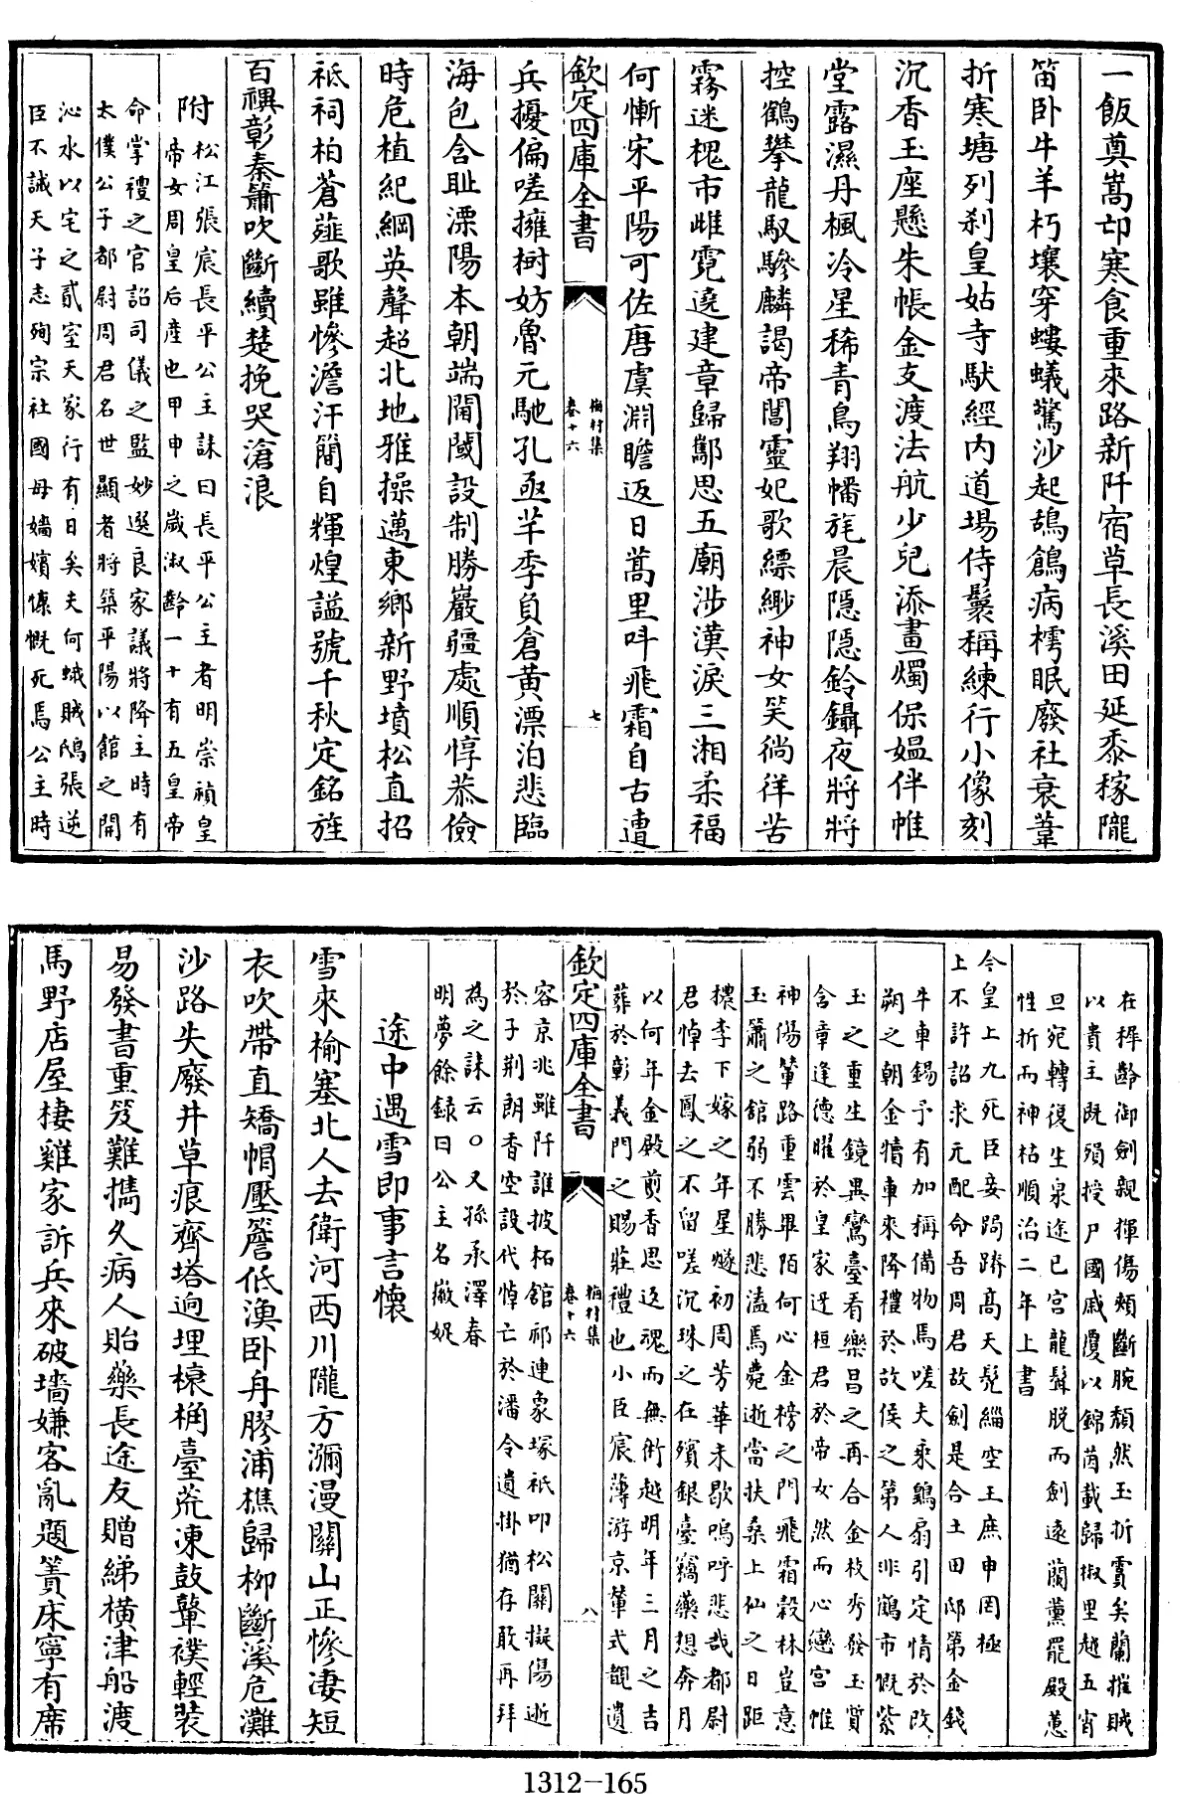 一飯奠嵩邙寒食重來路新阡宿草長溪田延黍稼隴
笛卧牛羊朽壤穿螻蟻驚沙起鴰鶬病樗眠廢社衰葦
折寒塘列剎皇姑寺馱經内道場侍鬟稱練行小像刻
沉香玉座懸朱帳金支渡法航少兒添畫燭保媪伴帷
堂露濕丹楓冷星稀青鳥翔幡旄晨隠隠鈴鑷夜將將
控鶴攀龍馭驂麟謁帝閶靈妃歌縹緲神女笑徜徉苦
霧迷槐市雌霓遶建章歸鄰思五廟涉漢淚三湘柔福
何慚宋平陽可佐唐虞淵瞻返日蒿里呌飛霜自古遭
欽定四庫全書
梅村集
卷十六
七
兵擾偏嗟擁樹妨魯元馳孔亟芊季負倉黄漂泊悲臨
海包含耻溧陽本朝端閫閾設制勝巖疆處順惇恭儉
時危植紀綱英聲超北地雅操邁東鄉新野墳松直招
祇祠柏蒼薤歌雖慘澹汗簡自輝煌謚號千秋定銘旌
百禩彰秦簫吹斷續楚挽哭滄浪
附
松江張宸長平公主誄曰長平公主者明崇禎皇
帝女周皇后産也甲申之嵗淑齡一十有五皇帝
命掌禮之官詔司儀之監妙選良家議將降主時有
太僕公子都尉周君名世顯者將築平陽以館之開
沁水以宅之貳室天家行有日矣夫何蛾賊鴟張逆
臣不誡天子志殉宗社國母嬙嬪慷慨死焉公主時
在稺齡御劍親揮傷頰斷腕頽然玉折霣矣蘭摧賊
以貴主既殞授尸國戚覆以錦茵載歸椒里越五宵
旦宛轉復生泉途已宫龍髯脱而劍遠蘭薰罷殿蕙
性折而神枯順治二年上書
今皇上九死臣妾跼蹐髙天髠緇空王庶申罔極
上不許詔求元配命吾周君故劍是合土田邸第金錢
牛車錫予有加稱備物焉嗟夫乘鸞扇引定情於改
朔之朝金犢車來降禮於故侯之第人非鶴市慨紫
玉之重生鏡異鸞臺看樂昌之再合金枝秀發玉質
含章逢德曜於皇家迓桓君於帝女然而心戀宫帷
神傷輦路重雲畢陌何心金榜之門飛霜穀林豈意
玉簫之舘弱不勝悲溘焉薨逝當扶桑上仙之日距
穠李下嫁之年星燧初周芳華未歇嗚呼悲哉都尉
君悼去鳳之不留嗟沉珠之在殯銀臺竊藥想奔月
以何年金殿煎香思返魂而無術越明年三月之吉
葬於彰義門之賜莊禮也小臣宸薄游京輦式覯遺
欽定四庫全書
梅村集
卷十六
八
容京兆雖阡誰披柘舘祁連象塚祇叩松關擬傷逝
於子荆朗香空設代悼亡於潘令遺掛猶存敢再拜
為之誄云○又孫承澤春
明夢餘録曰公主名徽娖
途中遇雪即事言懷
雪來榆塞北人去衛河西川隴方瀰漫關山正慘凄短
衣吹帶直矯帽壓簷低漁卧舟膠浦樵歸柳斷溪危灘
沙路失廢井草痕齊塔逈埋榱桷臺荒凍鼓鼙襆輕装
易發書重笈難攜久病人貽藥長途友贈綈横津船渡
馬野店屋棲雞家訴兵來破墻嫌客亂題簀床寧有席
1312-165